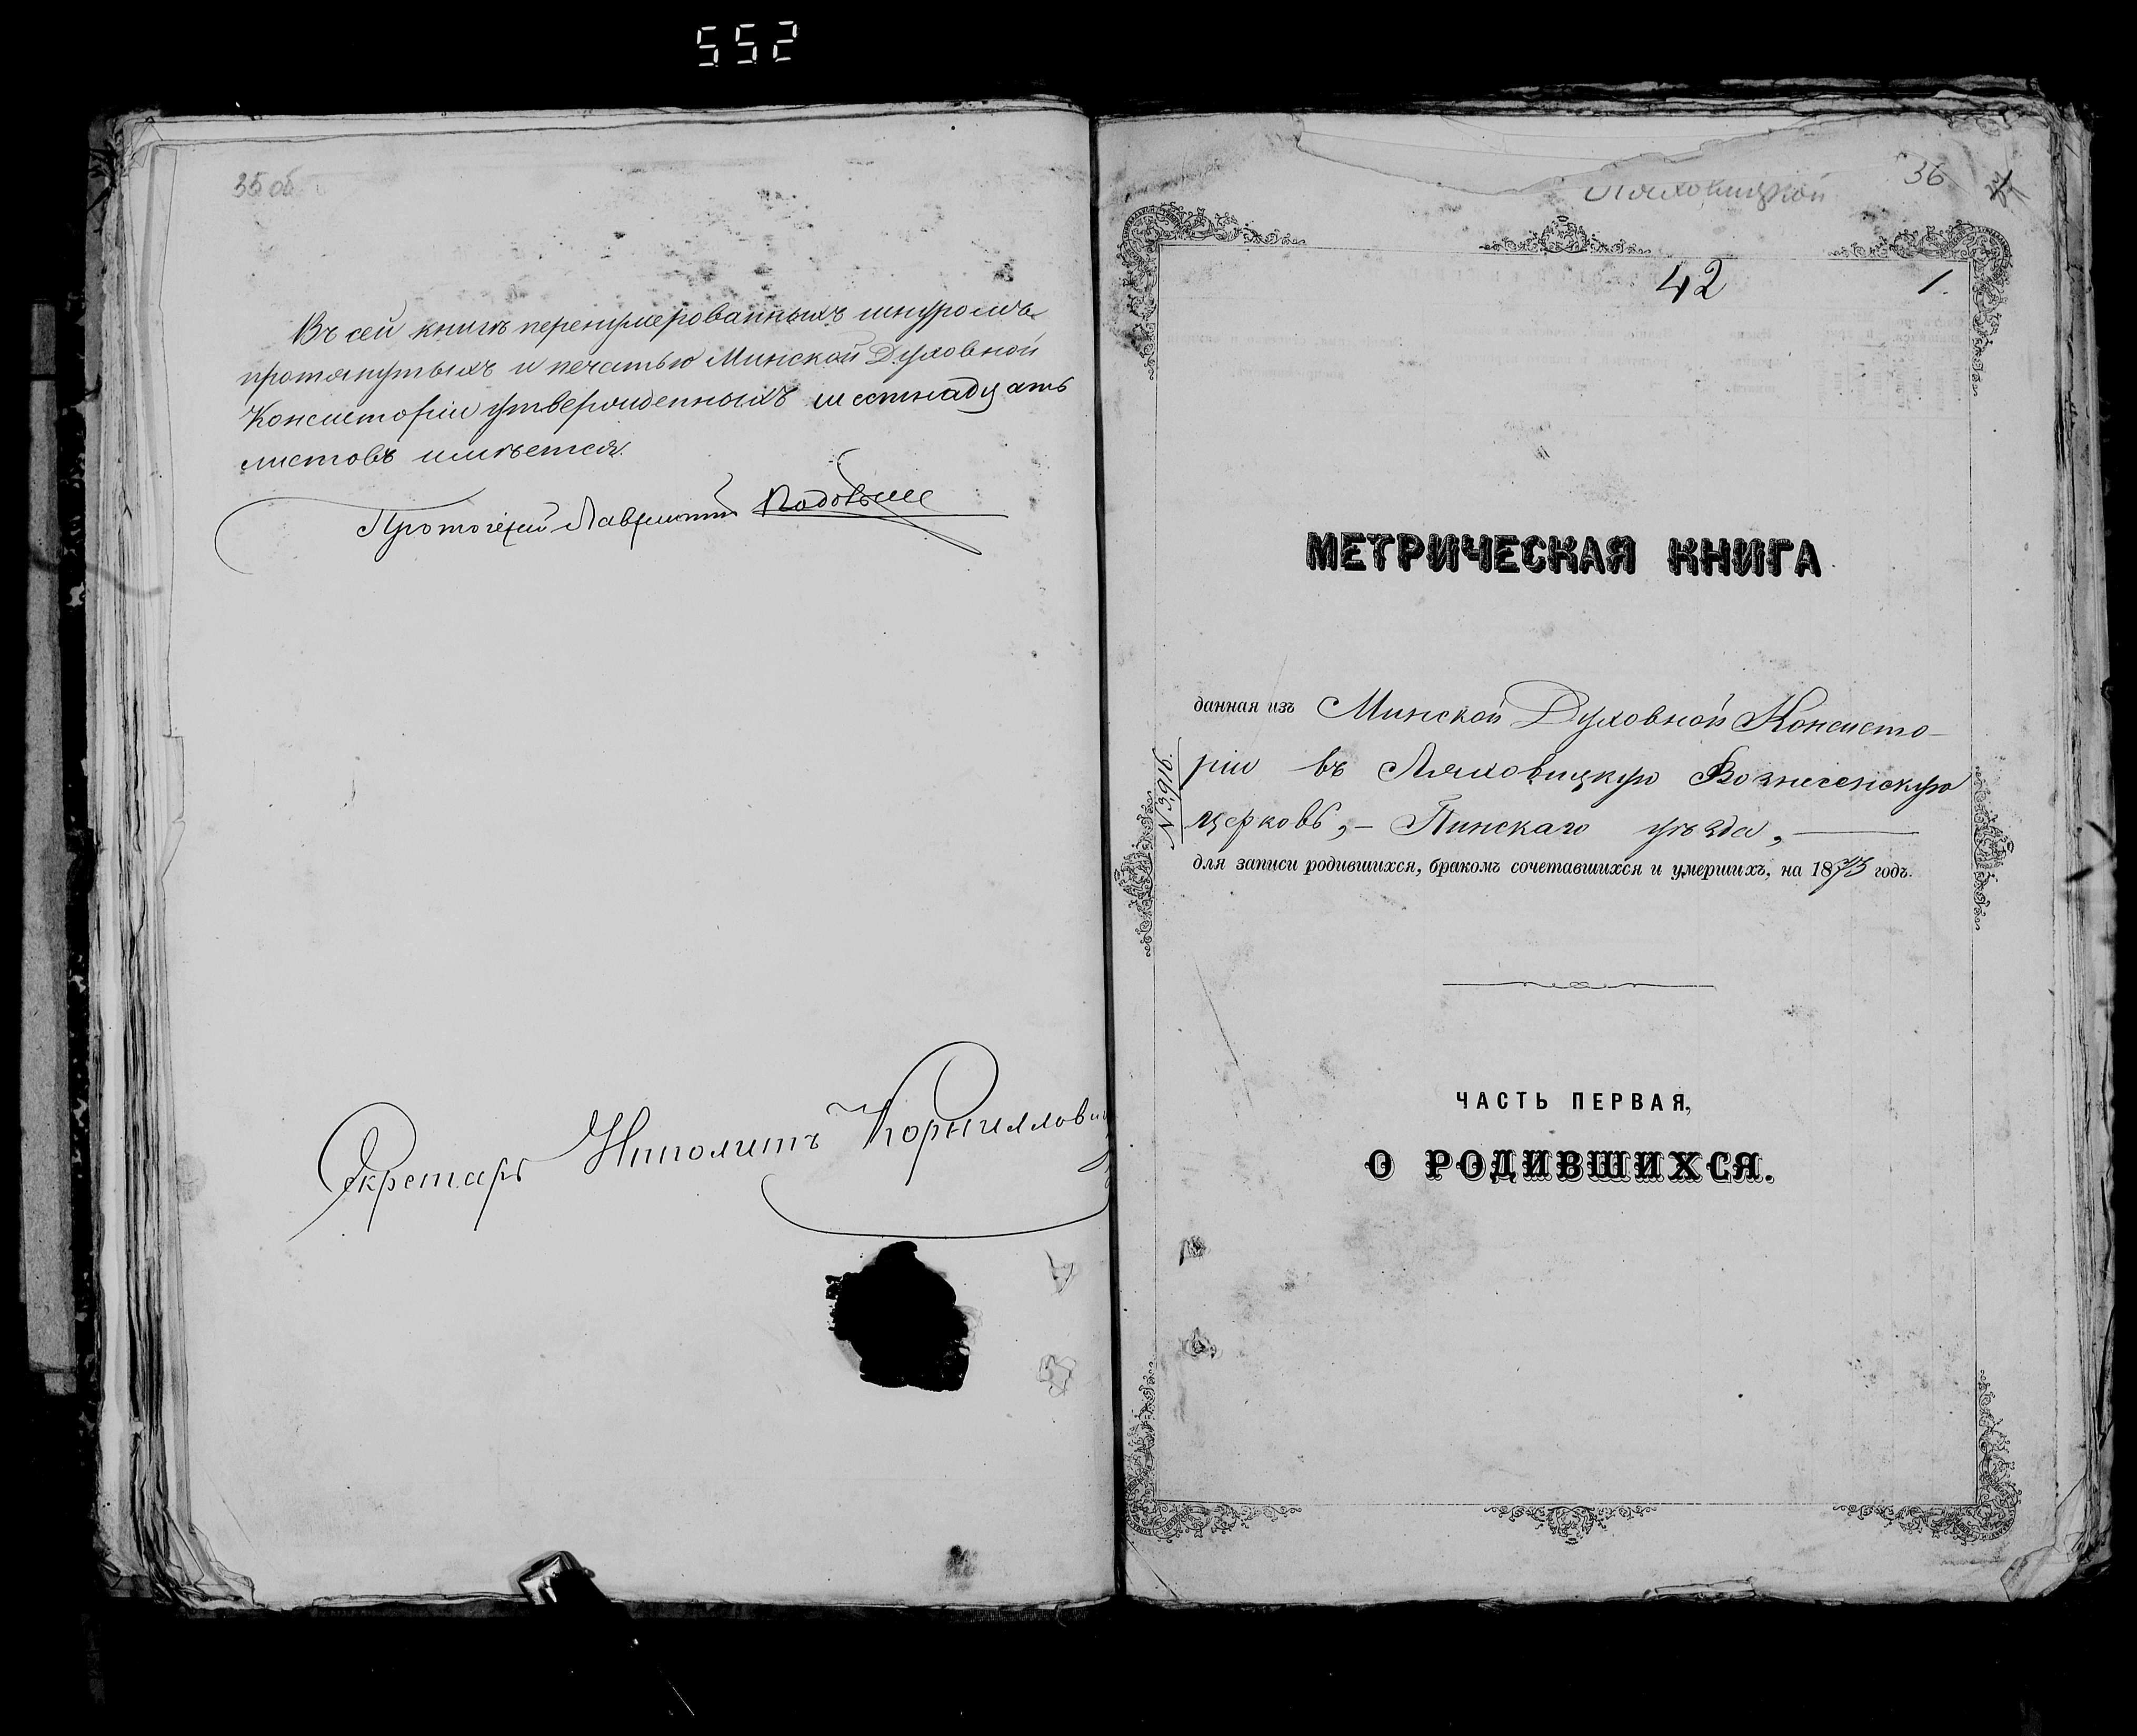 552
35 об
Въ сей книгѣ перенумерованныхъ шнуромъ
протянутыхъ и печатью Минской Духовной
Консисторіи утвержденныхъ шестнадцать
листовъ имѣется.
Протоіерей Лаврентій
Секретарь Иполитъ Корнилловичъ
Ляховицкой
36
42
1.
МЕТРИЧЕСКАЯ КНИГА
данная изъ Минской Духовной Консисто-
ріи въ Ляховицкую Вознесенскую
церковь, – Пинскаго уѣзда,
№ 3916.
для записи родившихся, бракомъ сочетавшихся и умершихъ, на 1875 годъ.
ЧАСТЬ ПЕРВАЯ,
О РОДИВШИХСЯ.